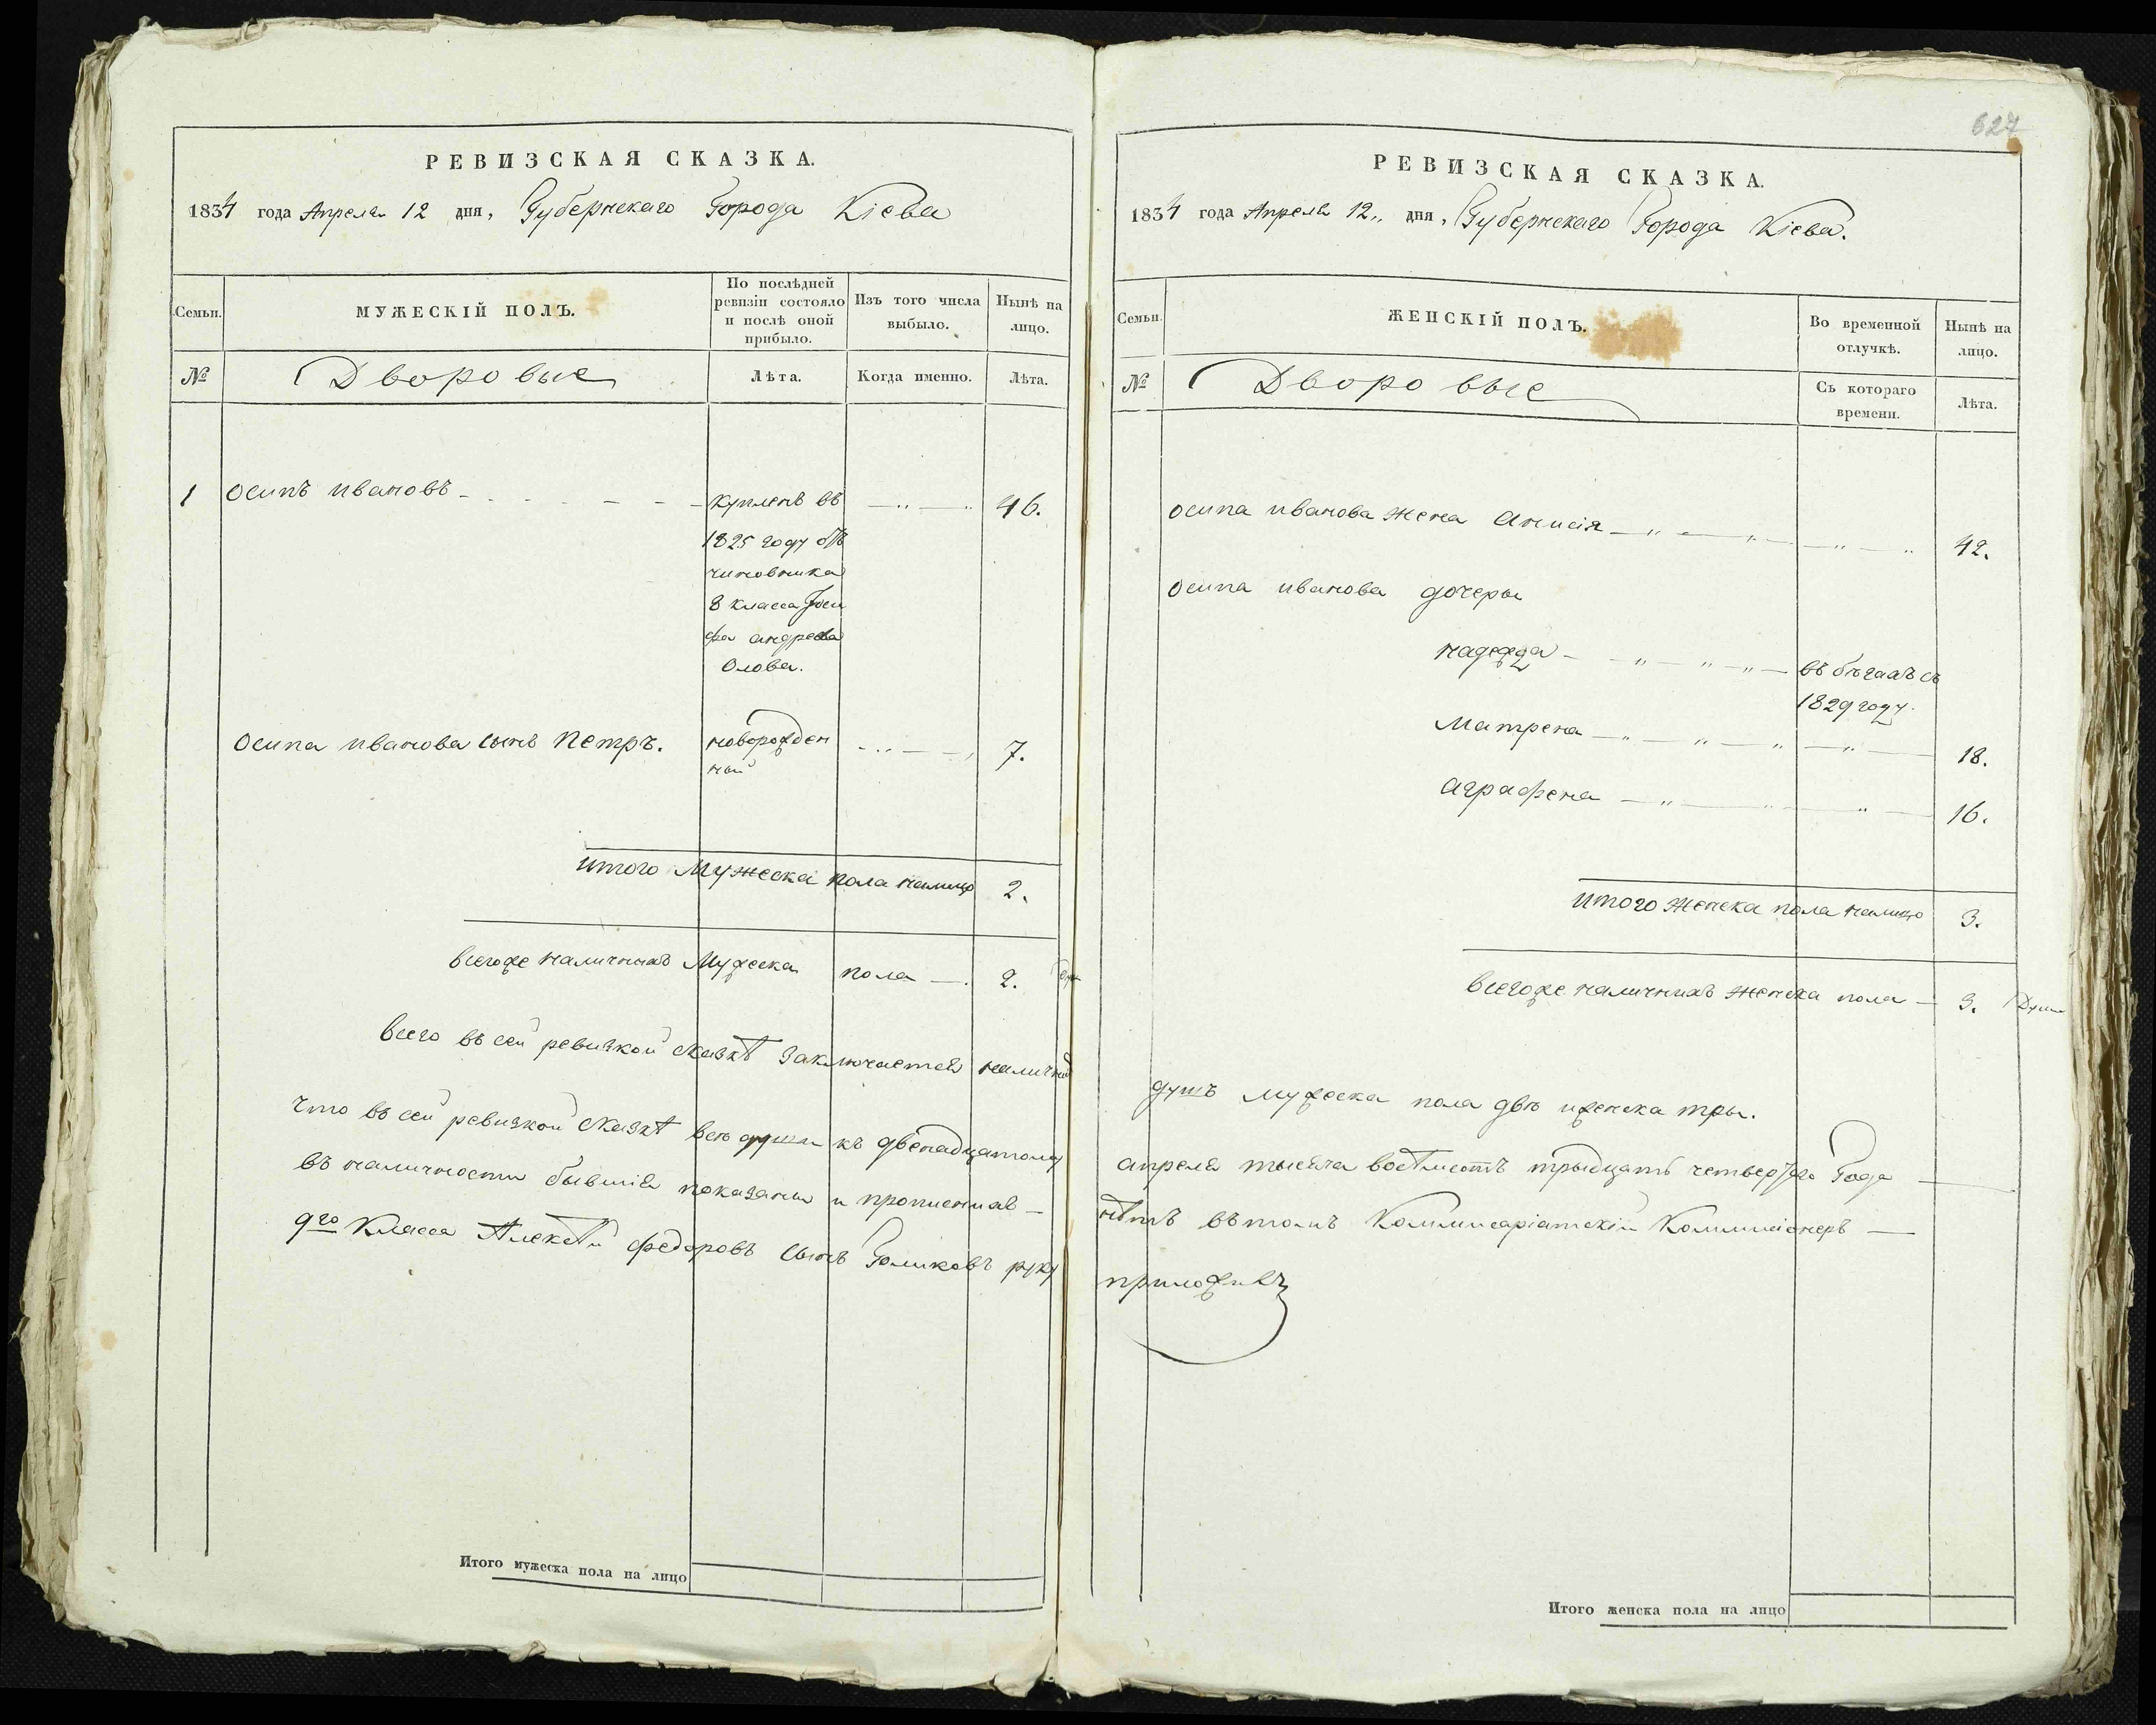 РЕВИЗСКАЯ СКАЗКА.
1834 года Апреля 12 дня, Губернскаго Города Кіева
Семьи.
МУЖЕСКІЙ ПОЛЪ.
По послѣдней
ревизіи состояло
и послѣ оной
прибыло.
Изъ того числа
выбыло.
Нынѣ на
лицо.
№
Дворовые
Лѣта.
Когда именно.
Лѣта.
1 Осипъ ивановъ
купленъ въ
1825 году отъ
чиновника
8 класса Іоси
фа андреева
46.
Осипа иванова сынъ Петръ.
новорожден
ный
7.
итого Мужеска пола налицо 2.
всегоже наличныхъ Мужеска пола 2.
всего въ сей ревизкой сказкѣ заключается
Что въ сей ревизкой сказкѣ все души къ двенадцатому
въ наличности бывшія показаны и
9го Класса Алексѣй федоровъ сынъ Голиковъ руку
Итого мужеска пола на лицо
627
РЕВИЗСКАЯ СКАЗКА.
1834 года Апреля 12 дня, Губернскаго Города Кіева.
Семьи.
ЖЕНСКІЙ ПОЛЪ.
Во временной
отлучкѣ.
Нынѣ на
лицо.
№
Дворовые
Съ котораго
времени.
Лѣта.
Осипа иванова жена Анисія 42.
Осипа иванова дочеры
надежда
въ бегахъ съ
1829 году.
Матрена 18.
Аграфена 16.
итого женска пола налицо 3.
всегоже наличныхъ женска пола 3. Души
душъ мужеска пола двѣ иженска тры.
апреля тысяча восѣмсотъ трыдцать четвертого Года
нѣтъ вътомъ Коммисаріатскій Коммисіонеръ
приложилъ
Итого женска пола на лицо